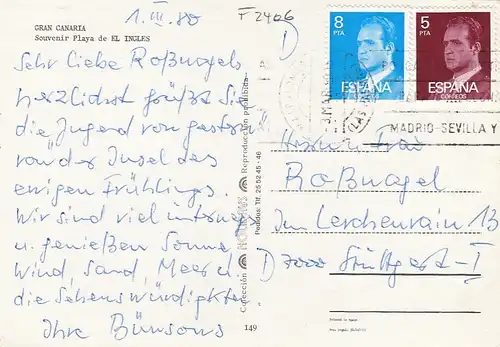 GRAN CANARIA
Souvenir Playa de EL INGLES
1. III. 80
F 2406
Sehr liebe Roßnagels
herzlichst grüßt Sie
die Jugend von gestern
von der Insel des
ewigen Frühlings.
Wir sind viel unterwegs
u. genießen Sonne
Wind, Sand, Meer u.
die Sehenswürdigktn.
Ihre Bünsows
Colección
Reproducción prohibida
Pedidos Tlf. 25 52 45 - 46
149
8
PTA
ESPAÑA
5
PTA
ESPAÑA
CORREOS
MADRID-SEVILLA Y
Herrn u. Frau
Roßnagel
Im Lerchenrain 13
D 7000 Stuttgart-1
Printed in Spain